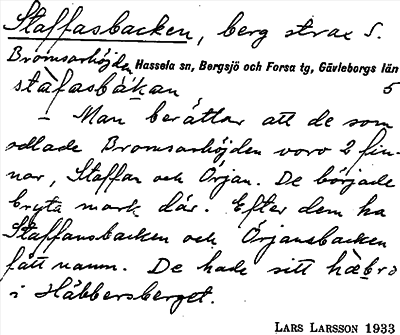 Staffasbacken, berg strax S.
Bromsarhöjden Hassela sn, Bergsjö och Forsa tg, Gävleborgs län
stàfasbákan 5
– Man berättar att de som
odlade Bromsarhöjden voro 2 fin-
nar, Staffan och Örjan. De började
bryta mark där. Efter dem ha
Staffansbacken och Örjansbacken
fått namn. De hade sitt hæbro
i Häbbersberget.
LARS LARSSON 1933